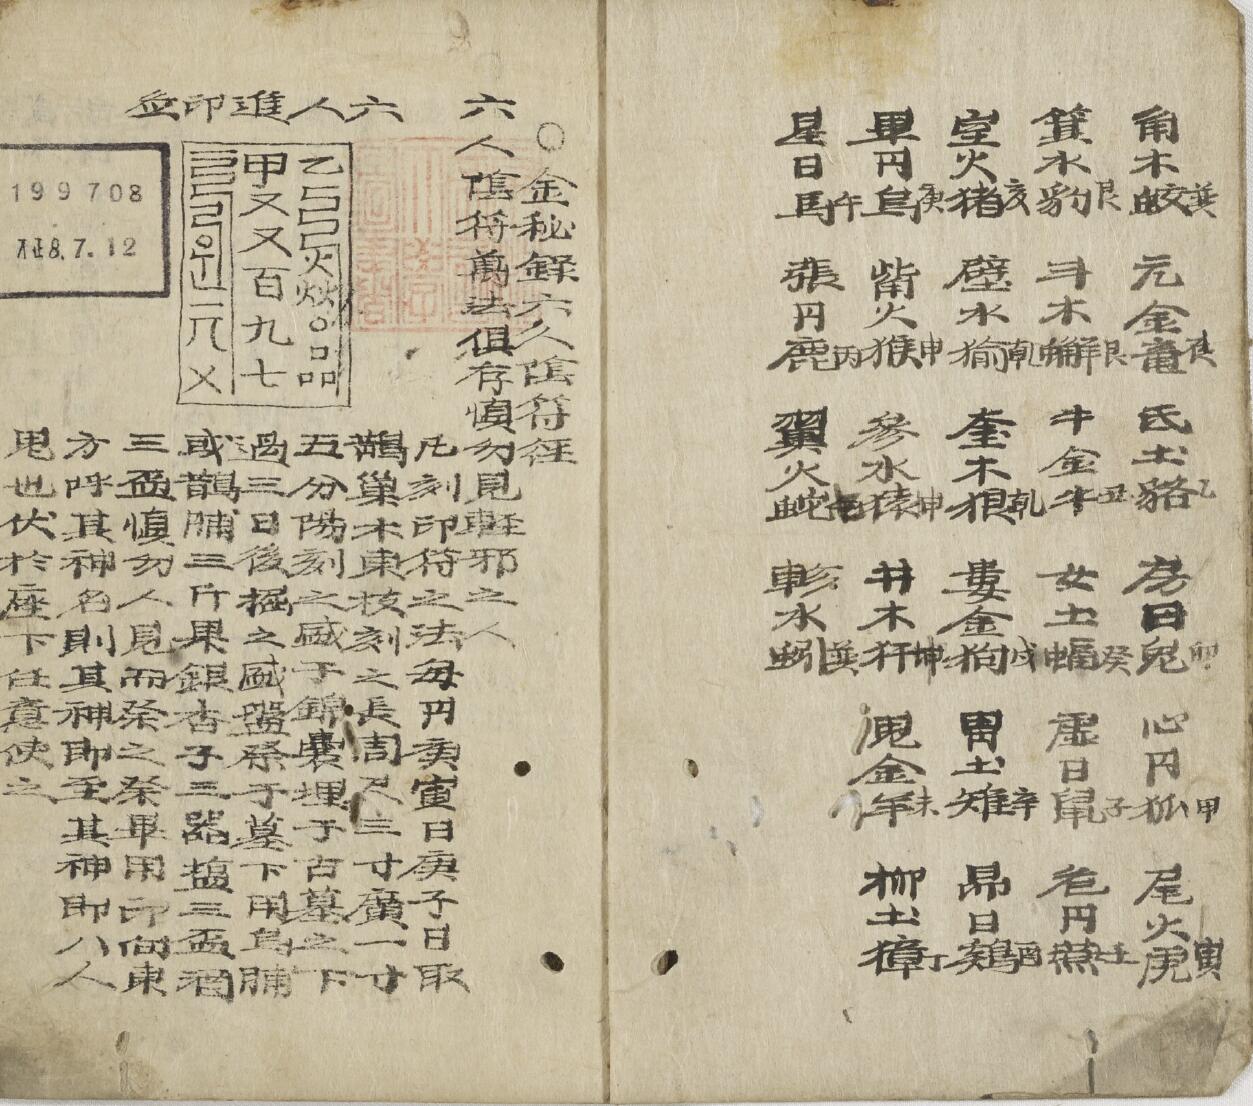 角木蛟巽 亢金竜辰 氐土貉乙 房日兎卯 心円狐甲 尾火虎寅
箕水豹艮 斗木獬艮 牛金牛丑 女土蝠癸 虛日鼠子 危円燕壬
室火猪亥 壁水㺄乾 奎木狼乾 婁金狗戌 胃土雉辛 昴日鷄酉
畢円烏庚 觜火猴申 參水猿坤 井木犴坤 鬼金羊未 柳土獐丁
星日馬午 張円鹿丙 翼火蛇 軫水蚓巽
○金秘錄六人陰符徑
六人陰符萬法俱存慎勿見輕邪之人
六人進印
凡刻印符之法每円庚寅日庚子日取
鵲巢木東枝刻之長周尺三寸廣一寸
五分陽刻之盛于錦囊埋于古墓之下
過三日後掘之盛盤祭于墓下用烏脯
或鵲脯三斤果銀杏子三器盐三盃酒
三盃慎勿人見而祭之祭畢用印向東
方呼其神名則其神即至其神即八人
鬼也伏於座下任意使之
甲又又百九七
199708
8.7.12